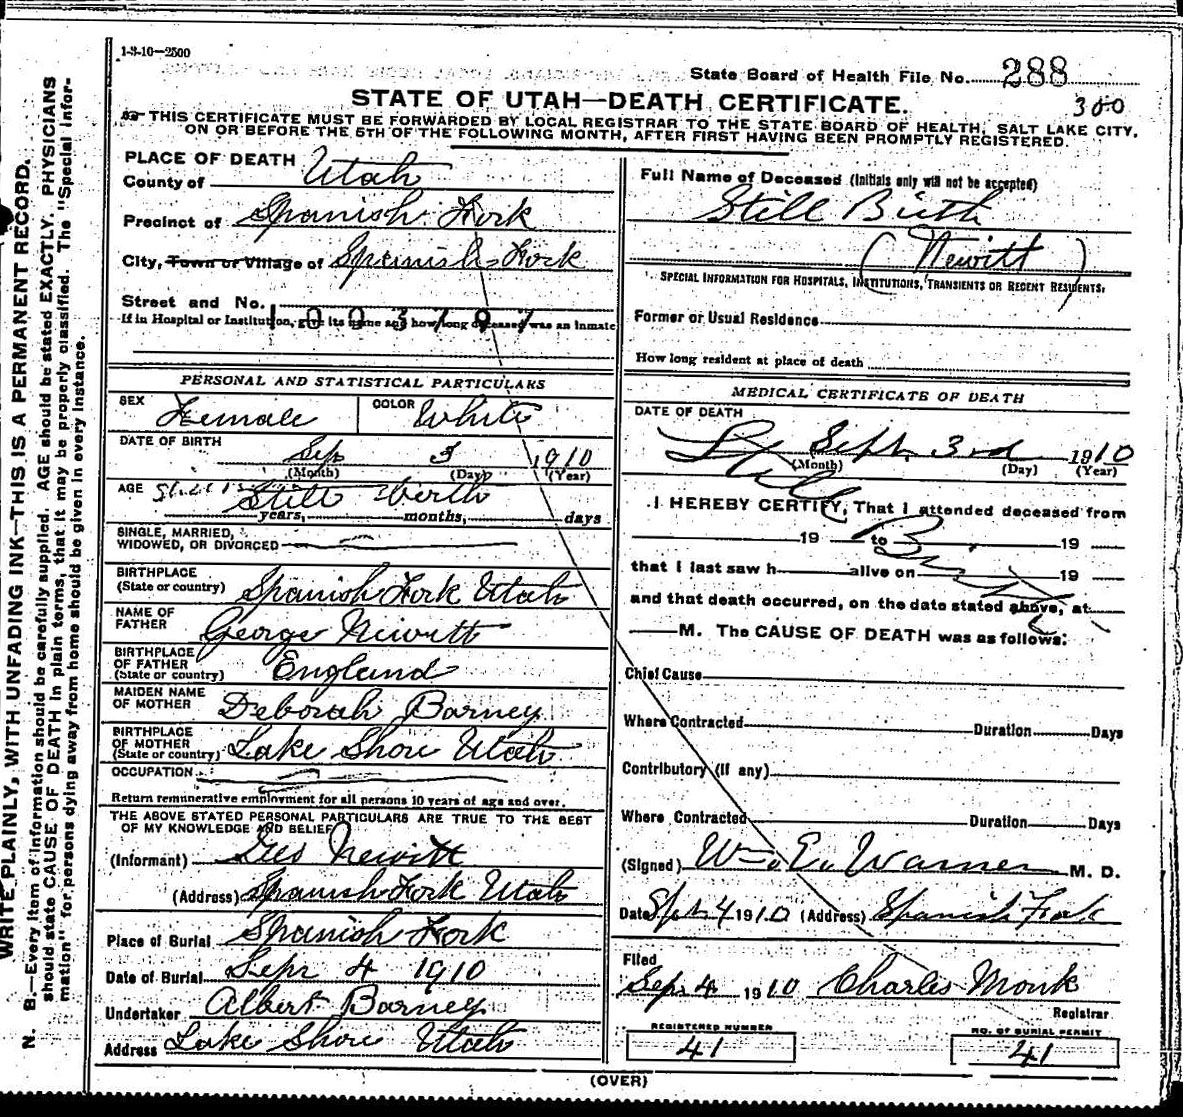 1-3-10-2500
State Board of Health File No. 288
STATE OF UTAH—DEATH CERTIFICATE.
300
THIS CERTIFICATE MUST BE FORWARDED BY LOCAL REGISTRAR TO THE STATE BOARD OF HEALTH, SALT LAKE CITY,
ON OR BEFORE THE 5TH OF THE FOLLOWING MONTH, AFTER FIRST HAVING BEEN PROMPTLY REGISTERED.
WRITE PLAINLY, WITH UNFADING INK—THIS IS A PERMANENT RECORD.
N. B.—Every item of information should be carefully supplied. AGE should be stated EXACTLY. PHYSICIANS
should state CAUSE OF DEATH in plain terms, that it may be properly classified. The "Special Infor-
mation" for persons dying away from home should be given in every instance.
PLACE OF DEATH
County of Utah
Precinct of Spanish Fork
City, Town or Village of Spanish Fork
Street and No.
If in Hospital or Institution, give its name and how long deceased was an inmate
PERSONAL AND STATISTICAL PARTICULARS
SEX Female COLOR White
DATE OF BIRTH Sep 3 1910
(Month) (Day) (Year)
AGE Still birth
years, months, days
SINGLE, MARRIED,
WIDOWED, OR DIVORCED
BIRTHPLACE
(State or country) Spanish Fork Utah
NAME OF
FATHER George Newitt
BIRTHPLACE
OF FATHER
(State or country) England
MAIDEN NAME
OF MOTHER Deborah Barney
BIRTHPLACE
OF MOTHER
(State or country) Lake Shore Utah
OCCUPATION
Return remunerative employment for all persons 10 years of age and over.
THE ABOVE STATED PERSONAL PARTICULARS ARE TRUE TO THE BEST
OF MY KNOWLEDGE AND BELIEF
(Informant) Geo Newitt
(Address) Spanish Fork Utah
Place of Burial Spanish Fork
Date of Burial Sepr 4 1910
Undertaker Albert Barney
Address Lake Shore Utah
Full Name of Deceased (Initials only will not be accepted)
Still Birth
(Newitt)
SPECIAL INFORMATION FOR HOSPITALS, INSTITUTIONS, TRANSIENTS OR RECENT RESIDENTS:
Former or Usual Residence
How long resident at place of death
MEDICAL CERTIFICATE OF DEATH
DATE OF DEATH
Sept. 3rd 1910
(Month) (Day) (Year)
I HEREBY CERTIFY, That I attended deceased from
19 to 19
that I last saw h alive on 19
and that death occurred, on the date stated above, at
M. The CAUSE OF DEATH was as follows:
Chief Cause
Where Contracted Duration Days
Contributory (if any)
Where Contracted Duration Days
(Signed) Wm. E. Warner M. D.
Date Sept 4 1910 (Address) Spanish Fork
Filed
Sepr 4 1910 Charles Monk
Registrar
REGISTERED NUMBER
41
NO. OF BURIAL PERMIT
41
(OVER)